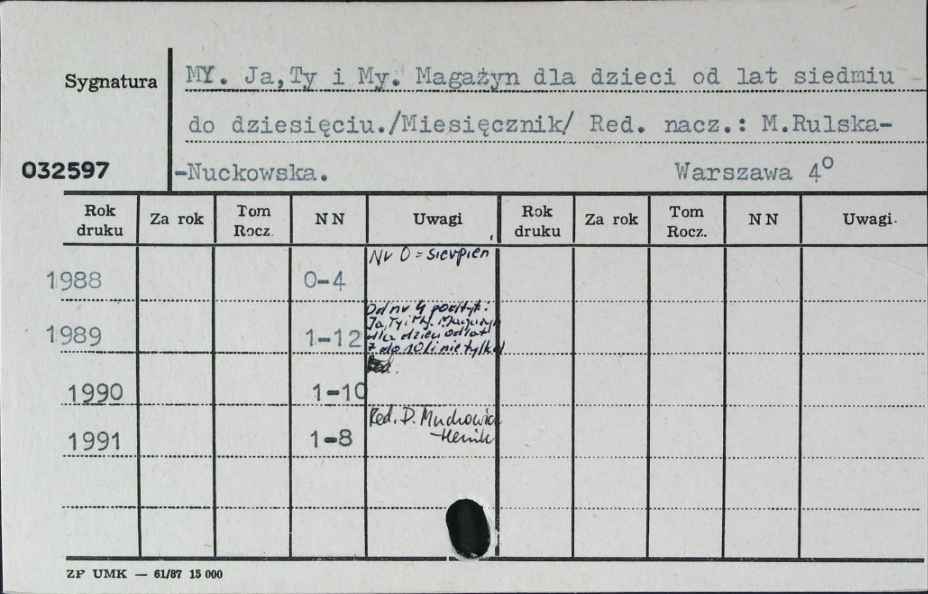 Sygnatura
MY. Ja,Ty i My. Magażyn dla dzieci od lat siedmiu
do dziesięciu./Miesięcznik/ Red. nacz.: M.Rulska-
032597
-Nuckowska. Warszawa 4°
Rok druku Za rok Tom Rocz. N N Uwagi Rok druku Za rok Tom Rocz. N N Uwagi
Nr 0 = sierpień
1988 0-4
Od nr 4 podtyt:
Ja, Ty i My. Magazyn
1989 1-12
dla dzieci od lat
7 do 10 i nie tylko
1990 1-10
Red. D.
1991 1-8
ZP UMK — 61/87 15 000